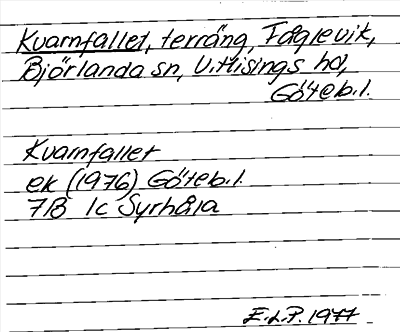 Kvarnfallet, terräng, Fåglevik,
Björlanda sn, V.Hisings hd,
Göteb.l.
Kvarnfallet
ek (1976) Göteb.l.
7B 1c Syrhåla
E.L.P. 1977